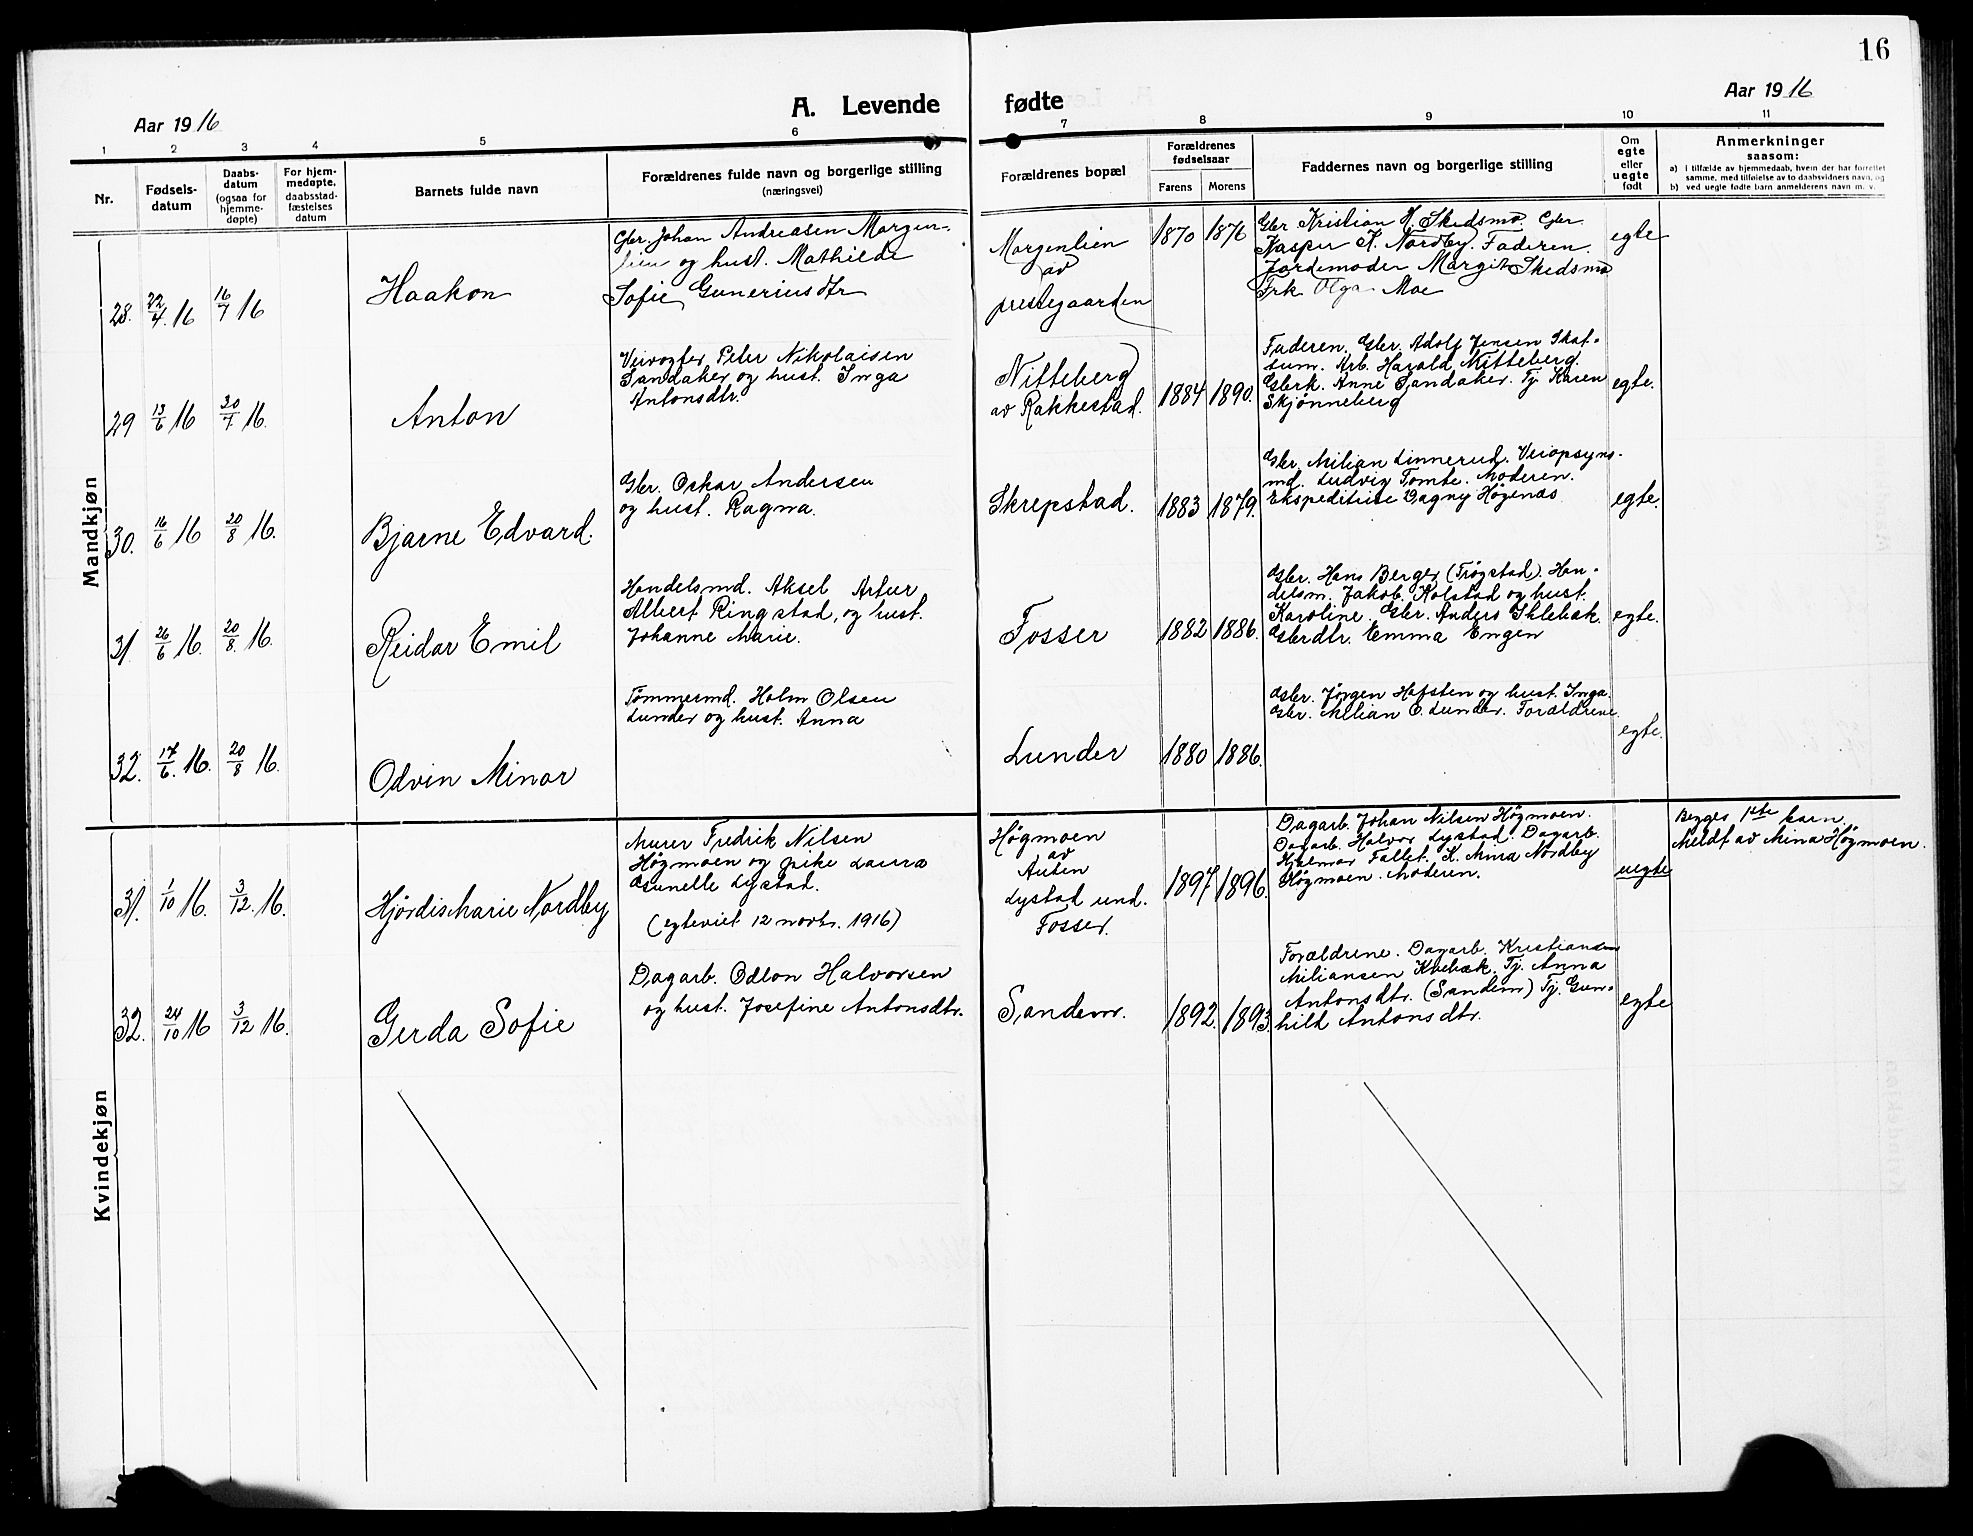 16
A. Levende fødte
Aar 1916
Aar 1916
1 2 3 4 5 6 7 8 9 10 11
Nr.
Fødsels-
datum
Daabs-
datum
(ogsaa for
hjemme-
døpte)
For hjem-
medøpte,
daabsstad-
fæstelses
datum
Barnets fulde navn
Forældrenes fulde navn og borgerlige stilling
(næringsvei)
Forældrenes bopæl
Forældrenes
fødselsaar
Farens Morens
Faddernes navn og borgerlige stilling
Om
egte
eller
uegte
født
Anmerkninger
saasom:
a) i tilfælde av hjemmedaab, hvem der har forrettet
samme, med tilføielse av to daabsvidners navn, og
b) ved uegte fødte barn anmelderens navn m. v.
Mandkjøn
28. 22/4. 16 16/7 16
Haakon
Gbr. Johan Andreasen Morgen-
lien og hust. Mathilde
Sofie Gunerius dtr
Morgenlien
av
prestegaarden
1870 1876
Gbr Kristian H. Skedsmo. Gbr.
Kasper K. Nordby. Faderen.
Jordemoder Margit Skedsmo
Frk Olga Moe
egte
29 13/6 16 30/7 16.
Anton
Veivogter Peter Nikolaisen
Sandaker og hust. Inga
Antonsdtr.
Nitteberg
av Rakkestad.
1884 1890.
Faderen. Gbr. Adolf Jensen Skat-
tum. Krb. Harald Nitteberg.
Gbrk. Anne Sandaker. Tj. Karen
Skjønneberg
egte.
30. 16/6 16 20/8 16.
Bjarne Edvard.
Gbr. Oskar Andersen
og hust. Ragna.
Skrepstad.
1883 1879.
Gbr. Milian Linnerud. Veiopsyns-
md. Ludvig Tomte. Moderen.
Ekspeditrise Dagny Høgenæs
egte.
31 26/6 16. 20/8. 16.
Reidar Emil
Handelsmd. Aksel Artur
Albert Ringstad, og hust.
Johanne Marie.
Fosser
1882 1886.
Gbr. Hans Berger (Trøgstad). Han-
delsm. Jakob Kolstad og hust.
Karoline. Gbr. Anders Ihlebæk.
Gbrdtr. Emma Engen
egte.
32. 17/6. 16. 20/8 16.
Odvin Minar
Tømmermd. Holm Olsen
Lunder og hust. Anna
Lunder
1880 1886.
Gbr. Jørgen Hafsten og hust. Inga.
Gbr. Milian O. Lunder. Forældrene.
egte.
Kvindekjøn
31. 1/10 16. 3/12. 16.
Hjørdis Marie Nordby
Murer Fredrik Nilsen
Høgmoen og pike Laura
Gunelle Lystad.
(egteviet 12 novbr. 1916)
Høgmoen
av
Auten
Lystad und.
Fosser.
1897 1896.
Dagarb. Johan Nilsen Høgmoen.
Dagarb. Halvor Lystad. Dagarb.
Hjalmar Fallet. K. Mina Nordby
Høgmoen. Moderen.
uegte
Begges 1ste barn.
Meldt av Mina Høgmoen.
32. 24/10 16 3/12 16.
Gerda Sofie
Dagarb. Odlon Halvorsen
og hust. Josefine Antonsdtr.
Sandem.
1892. 1893.
Forældrene. Dagarb. Kristiansen
Miliansen Tj. Anna
Antonsdtr. (Sandem) Tj. Gun-
hild Antonsdtr.
egte